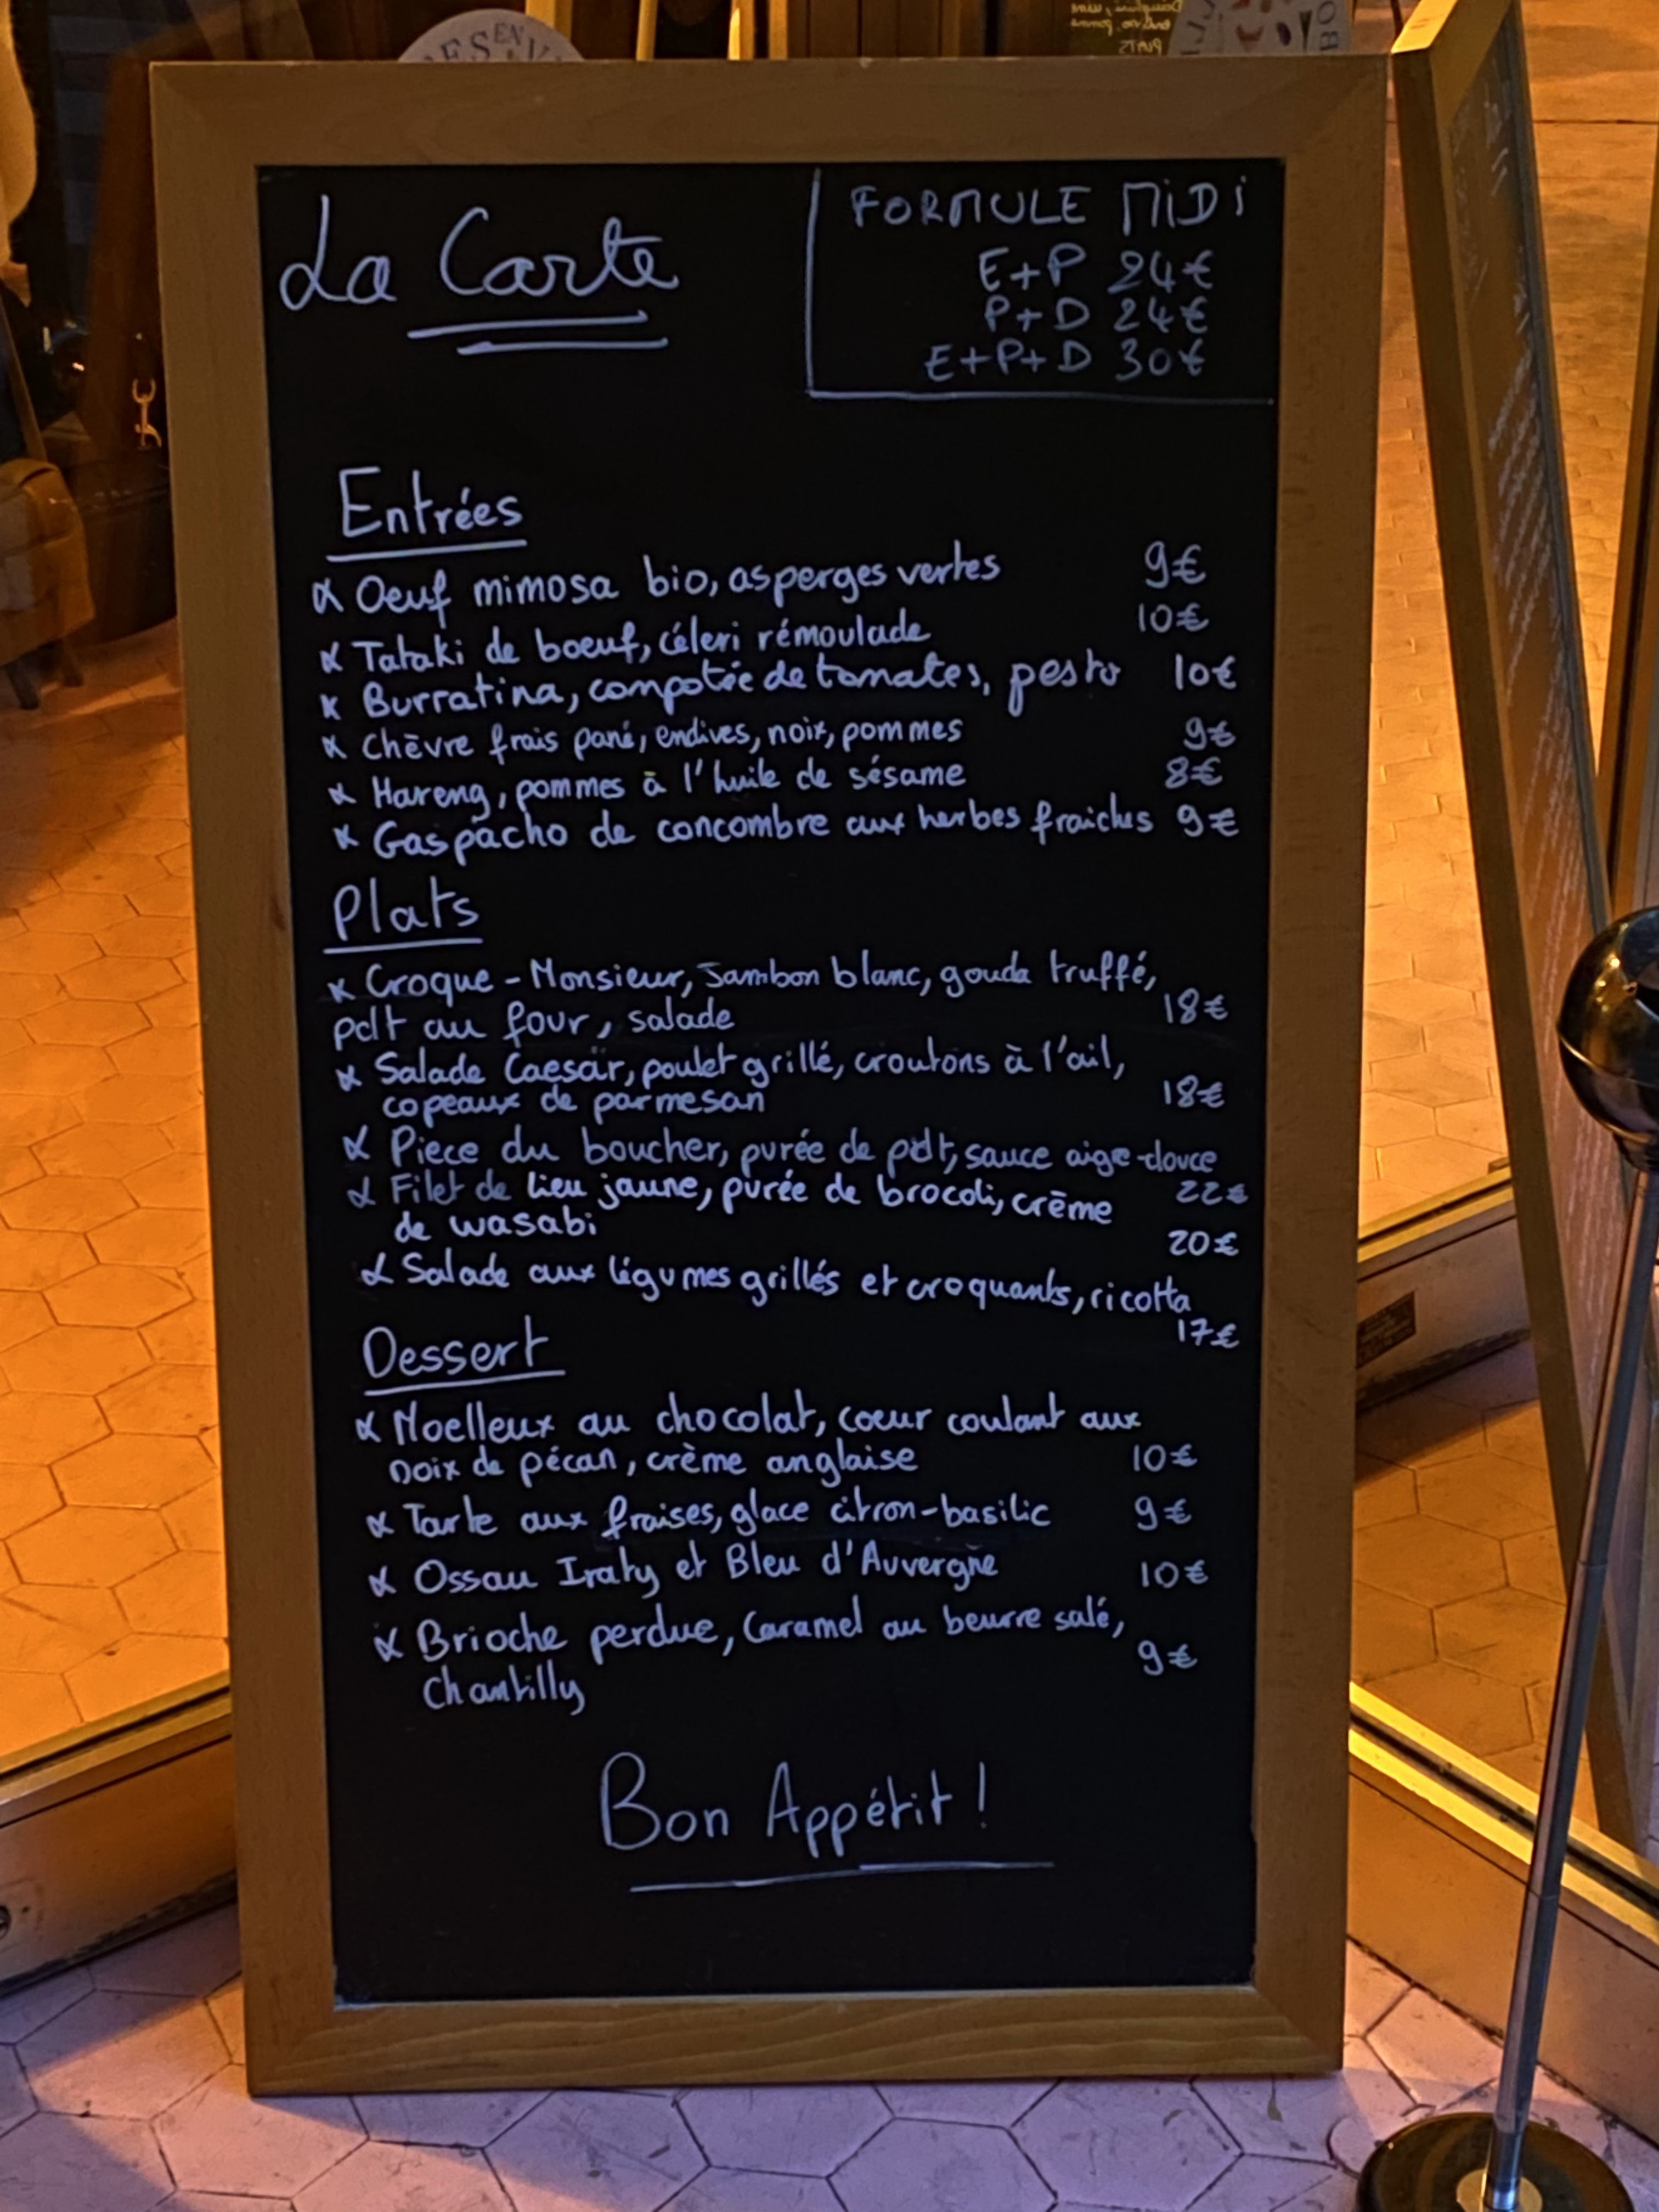 La Carte
FORMULE MIDI
E+P 24€
P+D 24€
E+P+D 30€
Entrées
Oeuf mimosa bio, asperges vertes 9€
Tataki de boeuf, céleri rémoulade 10€
Burratina, compotée de tomates, pesto 10€
Chèvre frais pané, endives, noix, pommes 9€
Hareng, pommes à l'huile de sésame 8€
Gaspacho de concombre aux herbes fraiches 9€
Plats
Croque-Monsieur, Jambon blanc, gouda truffé,
pdt au four, salade 18€
Salade Caesar, poulet grillé, croutons à l'ail,
copeaux de parmesan 18€
Piece du boucher, purée de pdt, sauce aigre-douce
22€
Filet de lieu jaune, purée de brocoli, crème
de wasabi 20€
Salade aux légumes grillés et croquants, ricotta
17€
Dessert
Moelleux au chocolat, coeur coulant aux
noix de pécan, crème anglaise 10€
Tarte aux fraises, glace citron-basilic 9€
Ossau Iraty et Bleu d'Auvergne 10€
Brioche perdue, Caramel au beurre salé,
Chantilly 9€
Bon Appétit !